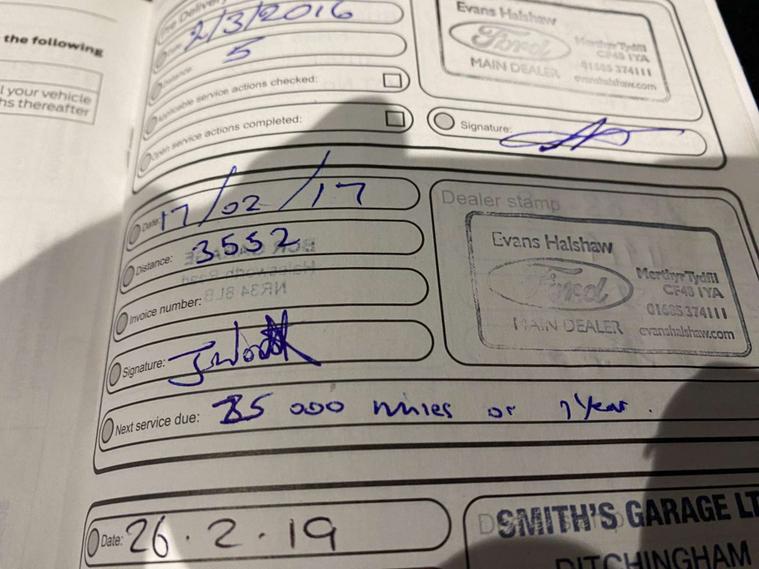 the following
your vehicle
hs thereafter
2/3/2016
5
Applicable service actions checked:
Open service actions completed:
Evans Halshaw
Ford
Merthyr Tydfil
CF48 1YA
MAIN DEALER
01685 374111
evanshalshaw.com
Signature:
Date: 17/02/17
Distance: 3552
Invoice number:
Signature:
Dealer stamp
Evans Halshaw
Ford
Merthyr Tydfil
CF48 1YA
01685 374111
MAIN DEALER
evanshalshaw.com
Next service due: 35 000 miles or 1 Year.
Date: 26.2.19
SMITH'S GARAGE LT
DITCHINGHAM